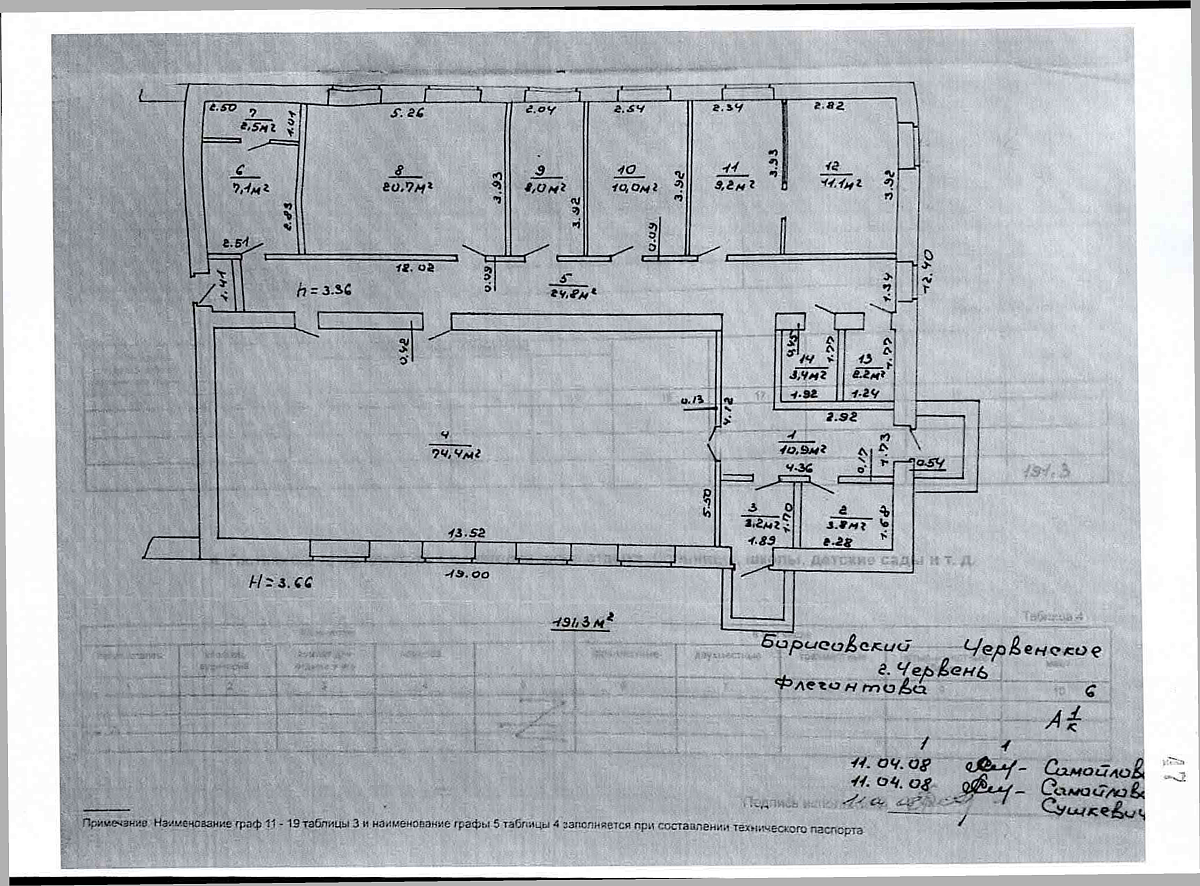 2.50
7
2,5м²
1.01
5.26
2.04
2.54
2.34
2.82
6
7,1м²
2.83
2.51
8
20,7м²
3.93
9
8,0м²
3.92
10
10,0м²
3.92
0.09
11
9,2м²
3.93
12
11.1м²
3.92
12.40
1.41
h=3.36
12.02
0.09
5
24,8м²
1.34
0,42
0.13
4.12
0,45
1.77
14
3,4м²
1.92
13
2.2м²
1.77
1.24
2.92
4
74,4м²
1
10,9м²
4.36
0.17
1.73
0.54
5.50
3
3,2м²
1.70
1.89
2
3.8м²
1.68
2.28
13.52
191.3
школы, детские сады и т. д.
H=3.66
19.00
191,3м²
Таблица 4
Борисовский Червенское
г. Червень
Флегонтова 6
А 1/к
1 1
11.04.08 Самойлов
11.04.08 Самойлов
Сушкевич
Подпись
Примечание. Наименование граф 11 - 19 таблицы 3 и наименование графы 5 таблицы 4 заполняется при составлении технического паспорта